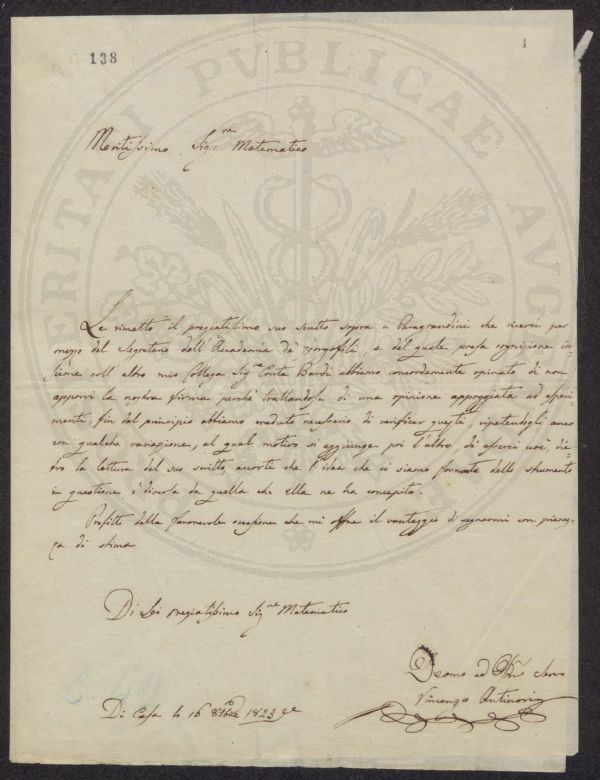 138
1
PROSPERITATI PVBLICAE AVG
Meritissimo Sig.re Matematico
Le rimetto il pregiatissimo suo scritto sopra i Paragrandini che ricevei per
mezzo del Segretario dell'Accademia de' Georgofili, e del quale presa cognizione in-
sieme coll'altro mio Collega Sig.re Conte Bardi abbiamo concordemente opinato di non
apporvi la nostra firma perché trattandosi di una opinione appoggiata ad esperi-
menti, fin dal principio abbiamo creduto necessario di verificar questi, ripetendogli anco
con qualche variazione, al qual motivo si aggiunge poi l'altro di esserci noi, die-
tro la lettura del suo scritto, accorti che l'idea che ci siamo formata dello strumento
in questione è diversa da quella che ella ne ha concepito.
Profitto della favorevole occasione che mi offre il vantaggio di segnarmi con pienez-
za di stima
Di Lei pregiatissimo Sig.re Matematico
Di Casa li 16 8bre 1823
Devmo ed Obbmo Servo
Vincenzo Antinori